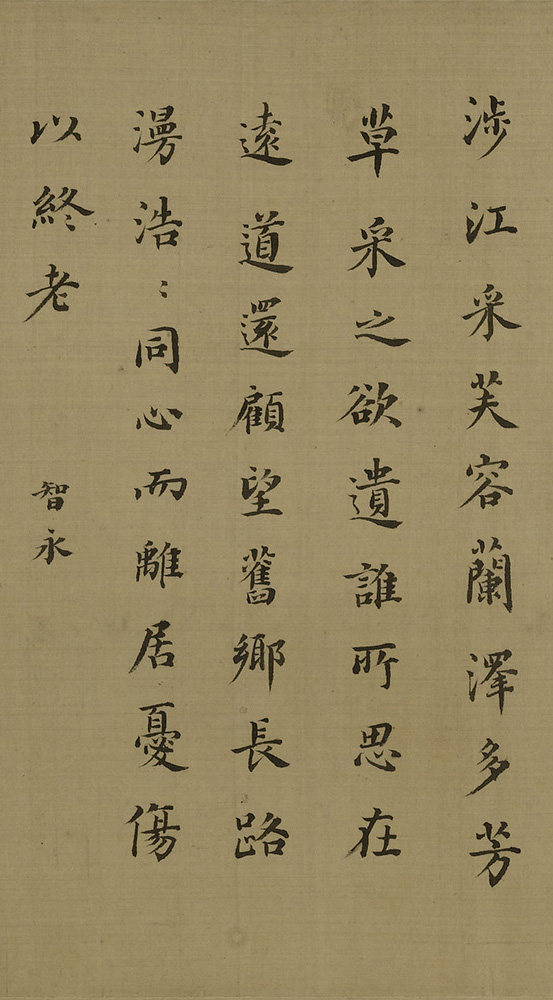 涉江采芙容蘭澤多芳
草采之欲遺誰所思在
遠道還顧望舊鄉長路
漫浩〻同心而離居憂傷
以終老
智永